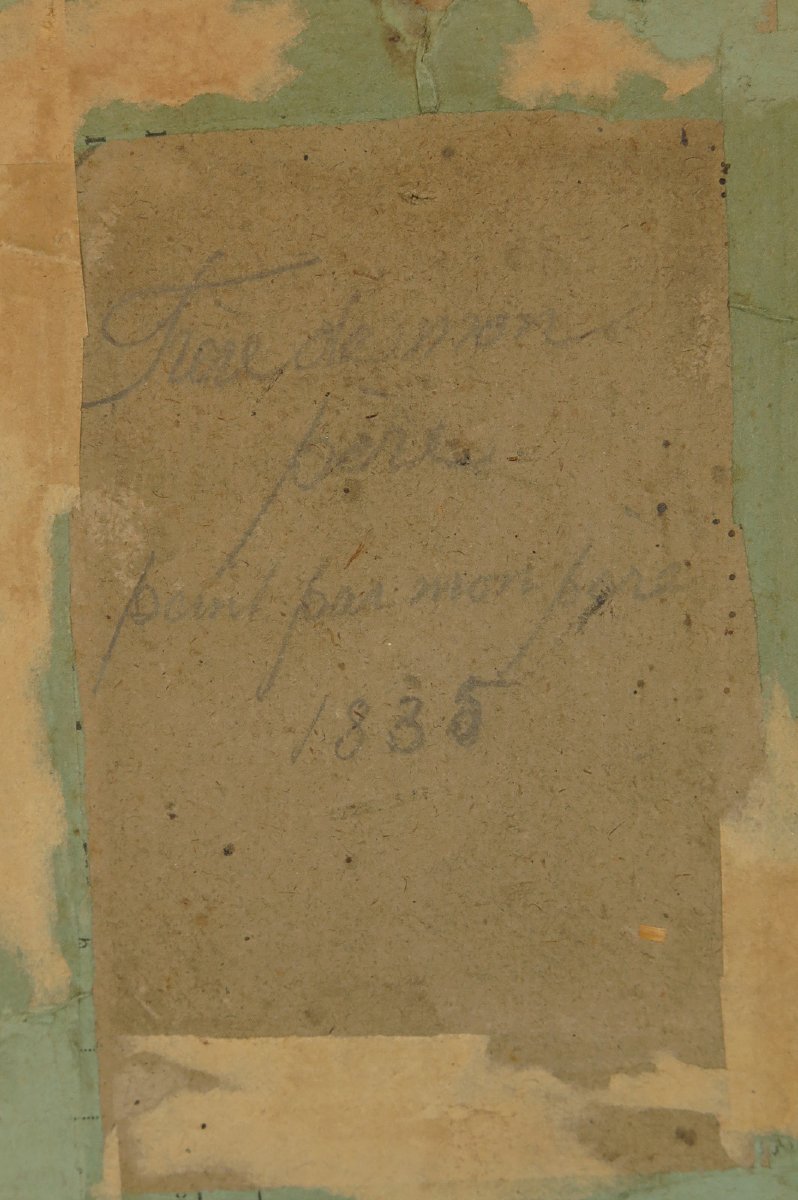 Frère de mon
père
peint par mon père
1835